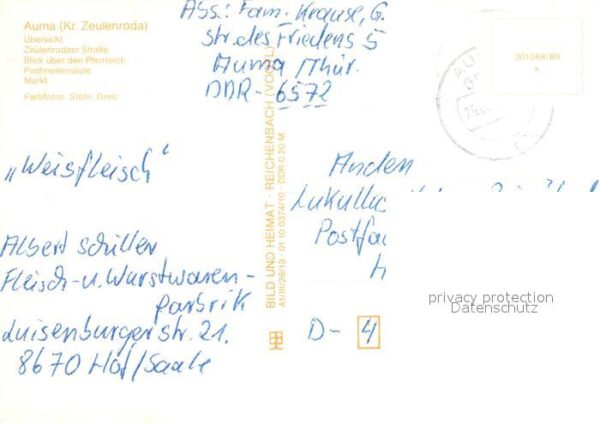 Auma (Kr. Zeulenroda)
Übersicht
Zeulenrodaer Straße
Blick über den Pfarrteich
Postmeilensäule
Markt
Farbfotos: Stöhr, Greiz
Abs.: Fam. Krause, G.
Str. des Friedens 5
Auma/Thür.
DDR-6572
201088/89
x
AU
„Weisfleisch“
Albert Schiller
Fleisch-u. Wurstwaren-
farbrik
Luisenburgerstr. 21.
8670 Hof/Saale
BILD UND HEIMAT · REICHENBACH (VOGTL)
A1/III/26/13 · 01 10 0374/10 · DDR 0,20 M
An den
Lukullus
Postfac
D- 4
privacy protection
Datenschutz